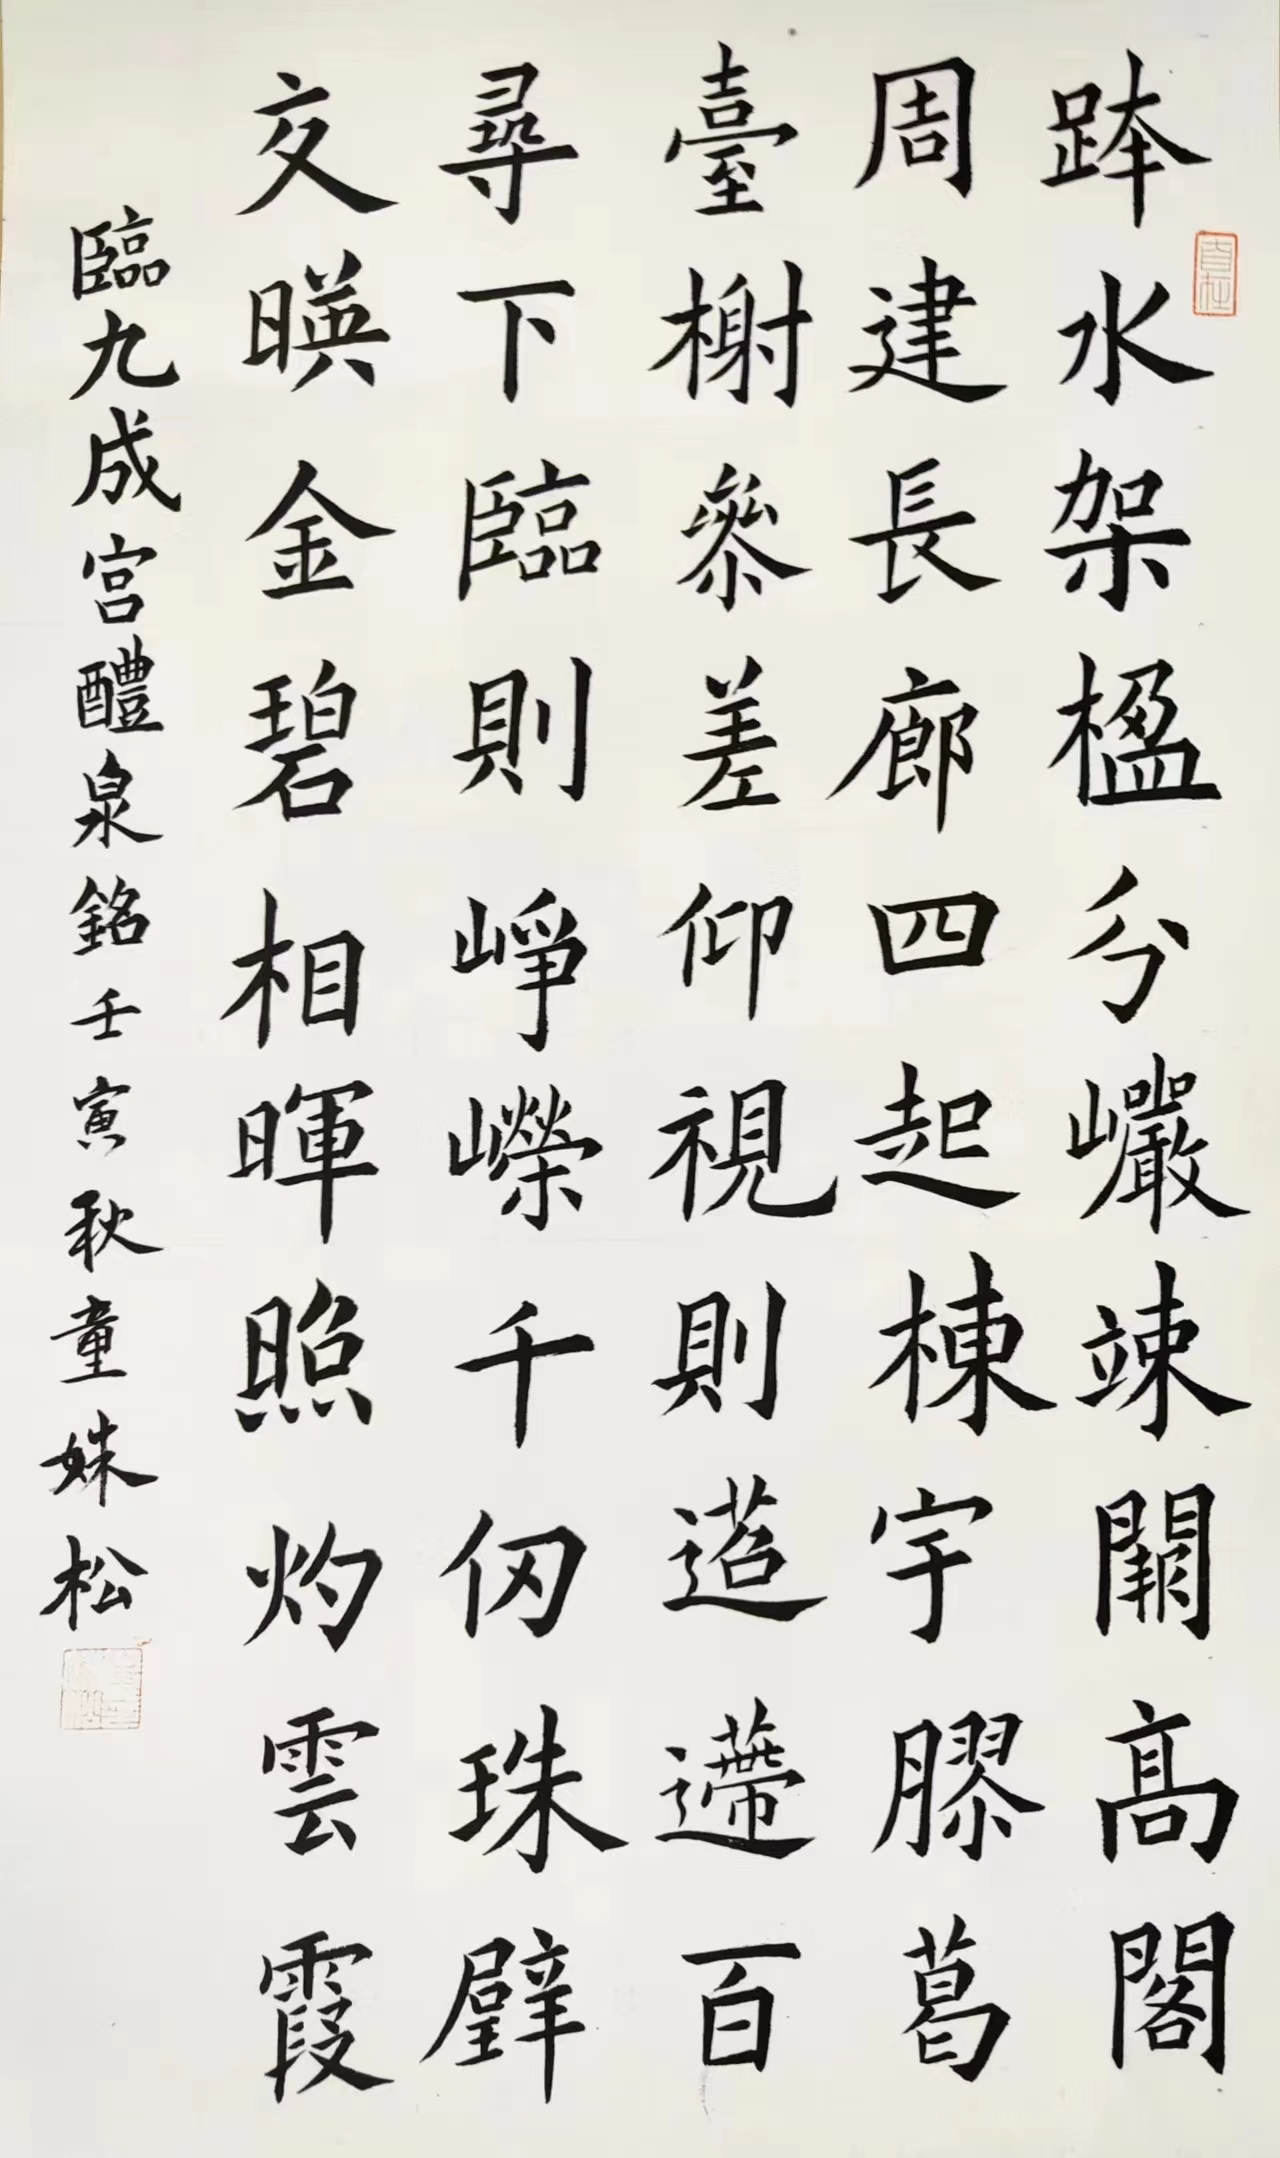 跨水架楹分巗竦闕高閣
周建長廊四起棟宇膠葛
臺榭参差仰視則迢遰百
尋下臨則崢嶸千仞珠璧
交暎金碧相暉照灼雲霞
臨九成宫醴泉銘壬寅秋童姝松